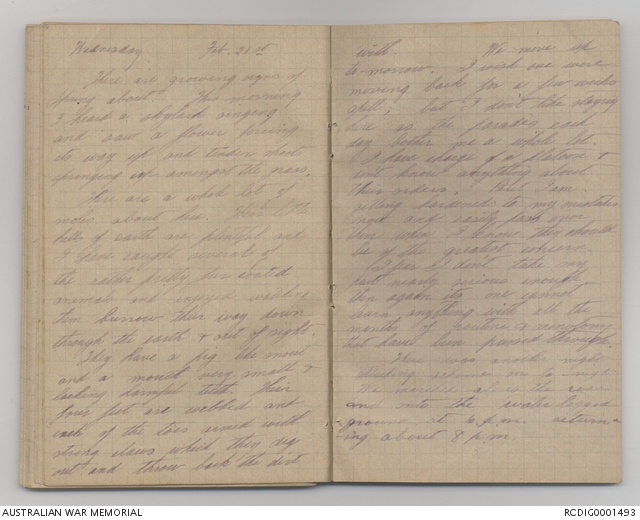 Wednesday Feb. 21st
There are growing signs of
spring about. This morning
I heard a skylark singing
and saw a flower forcing
its way up and tender shoots
springing up amongst the grass.
There are a whole lot of
moles about here. Their little
hills of earth are plentiful and
I have caught several of
the rather pretty fur coated
animals and enjoyed watching
them burrow their way down
through the earth & out of sight.
They have a pig like snout
and a mouth very small &
lacking harmful teeth. Their
four feet are webbed and
each of the toes armed with
strong claws which they dig
out and throw back the dirt
with. We move up
to-morrow. I wish we were
moving back for a few weeks
spell; but I don't like staying
here as the parades each
day bother me a whole lot.
I have charge of a platoon &
don't know anything about
this orders. But I am
getting hardened to my mistakes
and easily pass over
them when I know they should
be of the greatest concern.
I don't take my
part nearly serious enough
then again its one cannot
learn anything with all the
months of routine &
that have been passed through.
There was another night
scheme on to-night
We marched along the road
and onto the
ground at 6 p.m. return-
ing about 8 p.m.
AUSTRALIAN WAR MEMORIAL
RCDIG0001493